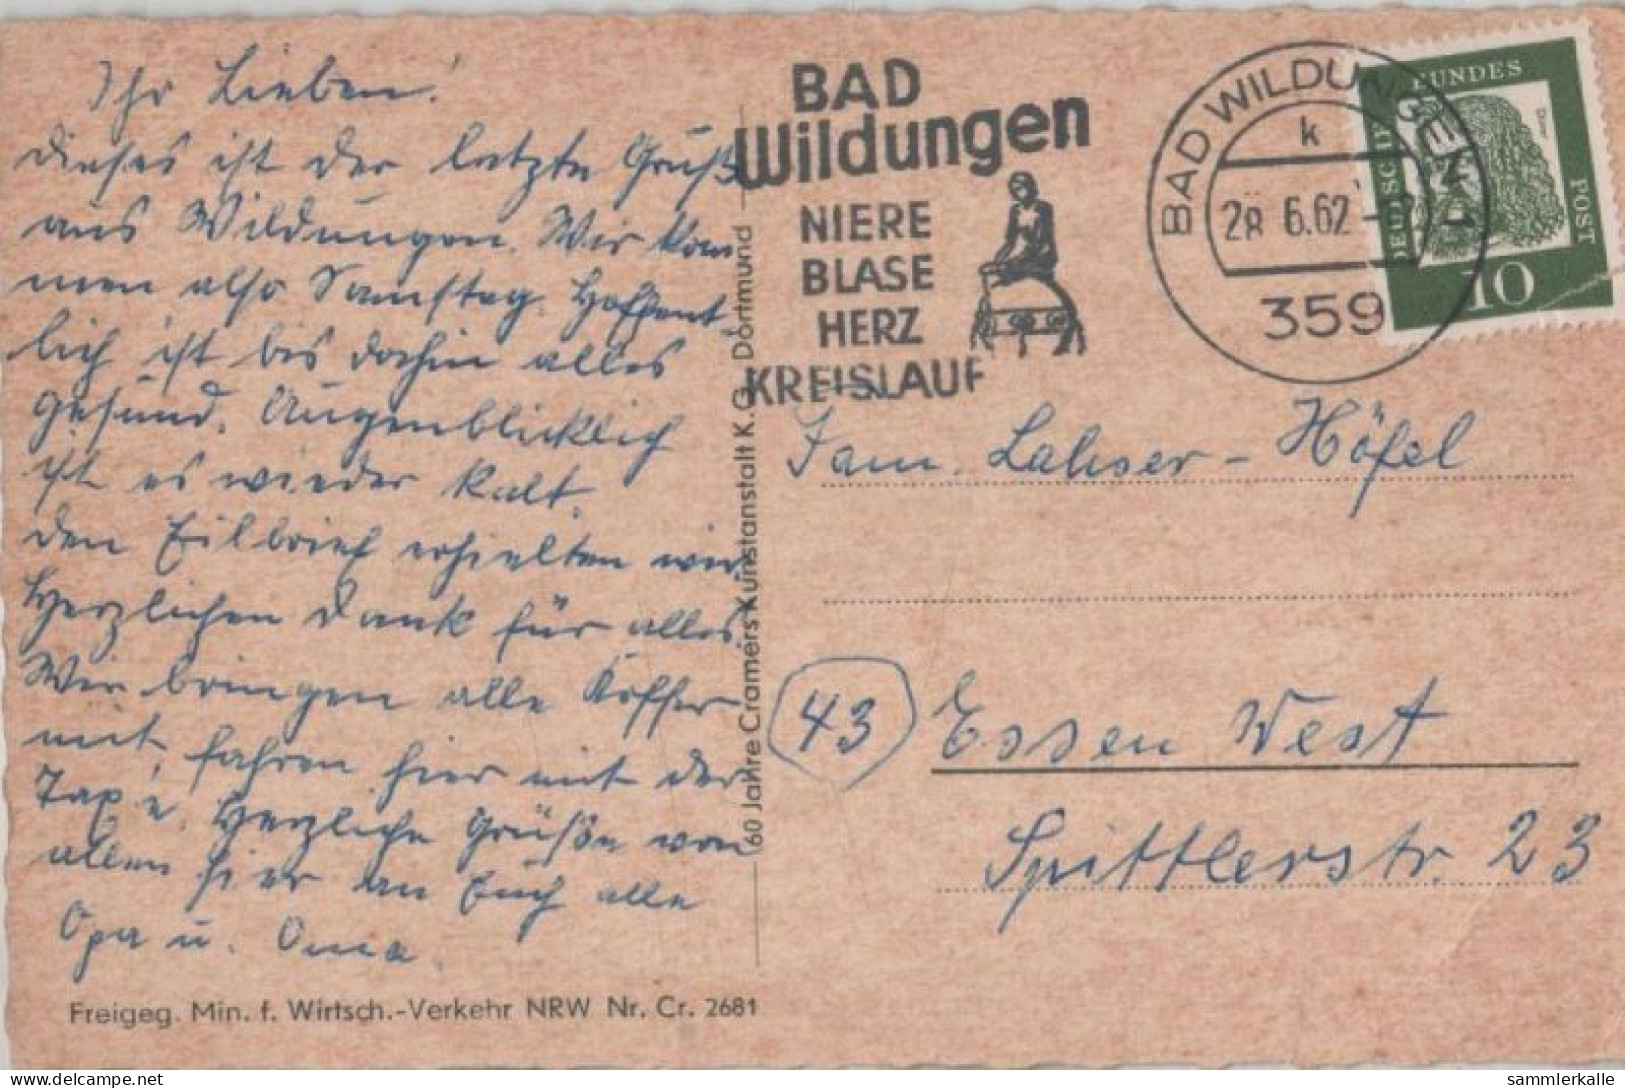 Ihr Lieben!
Dieses ist der letzte Gruß
aus Wildungen. Wir kom
men also Samstag. Hoffent
lich ist bis dahin alles
gesund. Augenblicklich
ist es wieder kalt.
Den Eilbrief erhielten wir
Herzlichen Dank für alles
Wir bringen alle Koffer
mit, fahren hier mit der
Taxe. Herzliche Grüße von
allen hier an Euch alle
Opa u. Oma.
Freigeg. Min. f. Wirtsch.-Verkehr NRW Nr. Cr. 2681
60 Jahre Cramers Kunstanstalt K.G. Dortmund
BAD
Wildungen
NIERE
BLASE
HERZ
KREISLAUF
BAD WILDUNGEN 1
k
28 6.62
359
DEUTSCHE BUNDESPOST
10
Fam. Lahser - Höfel
43 Essen West
Spittlerstr. 23
sammlerkalle